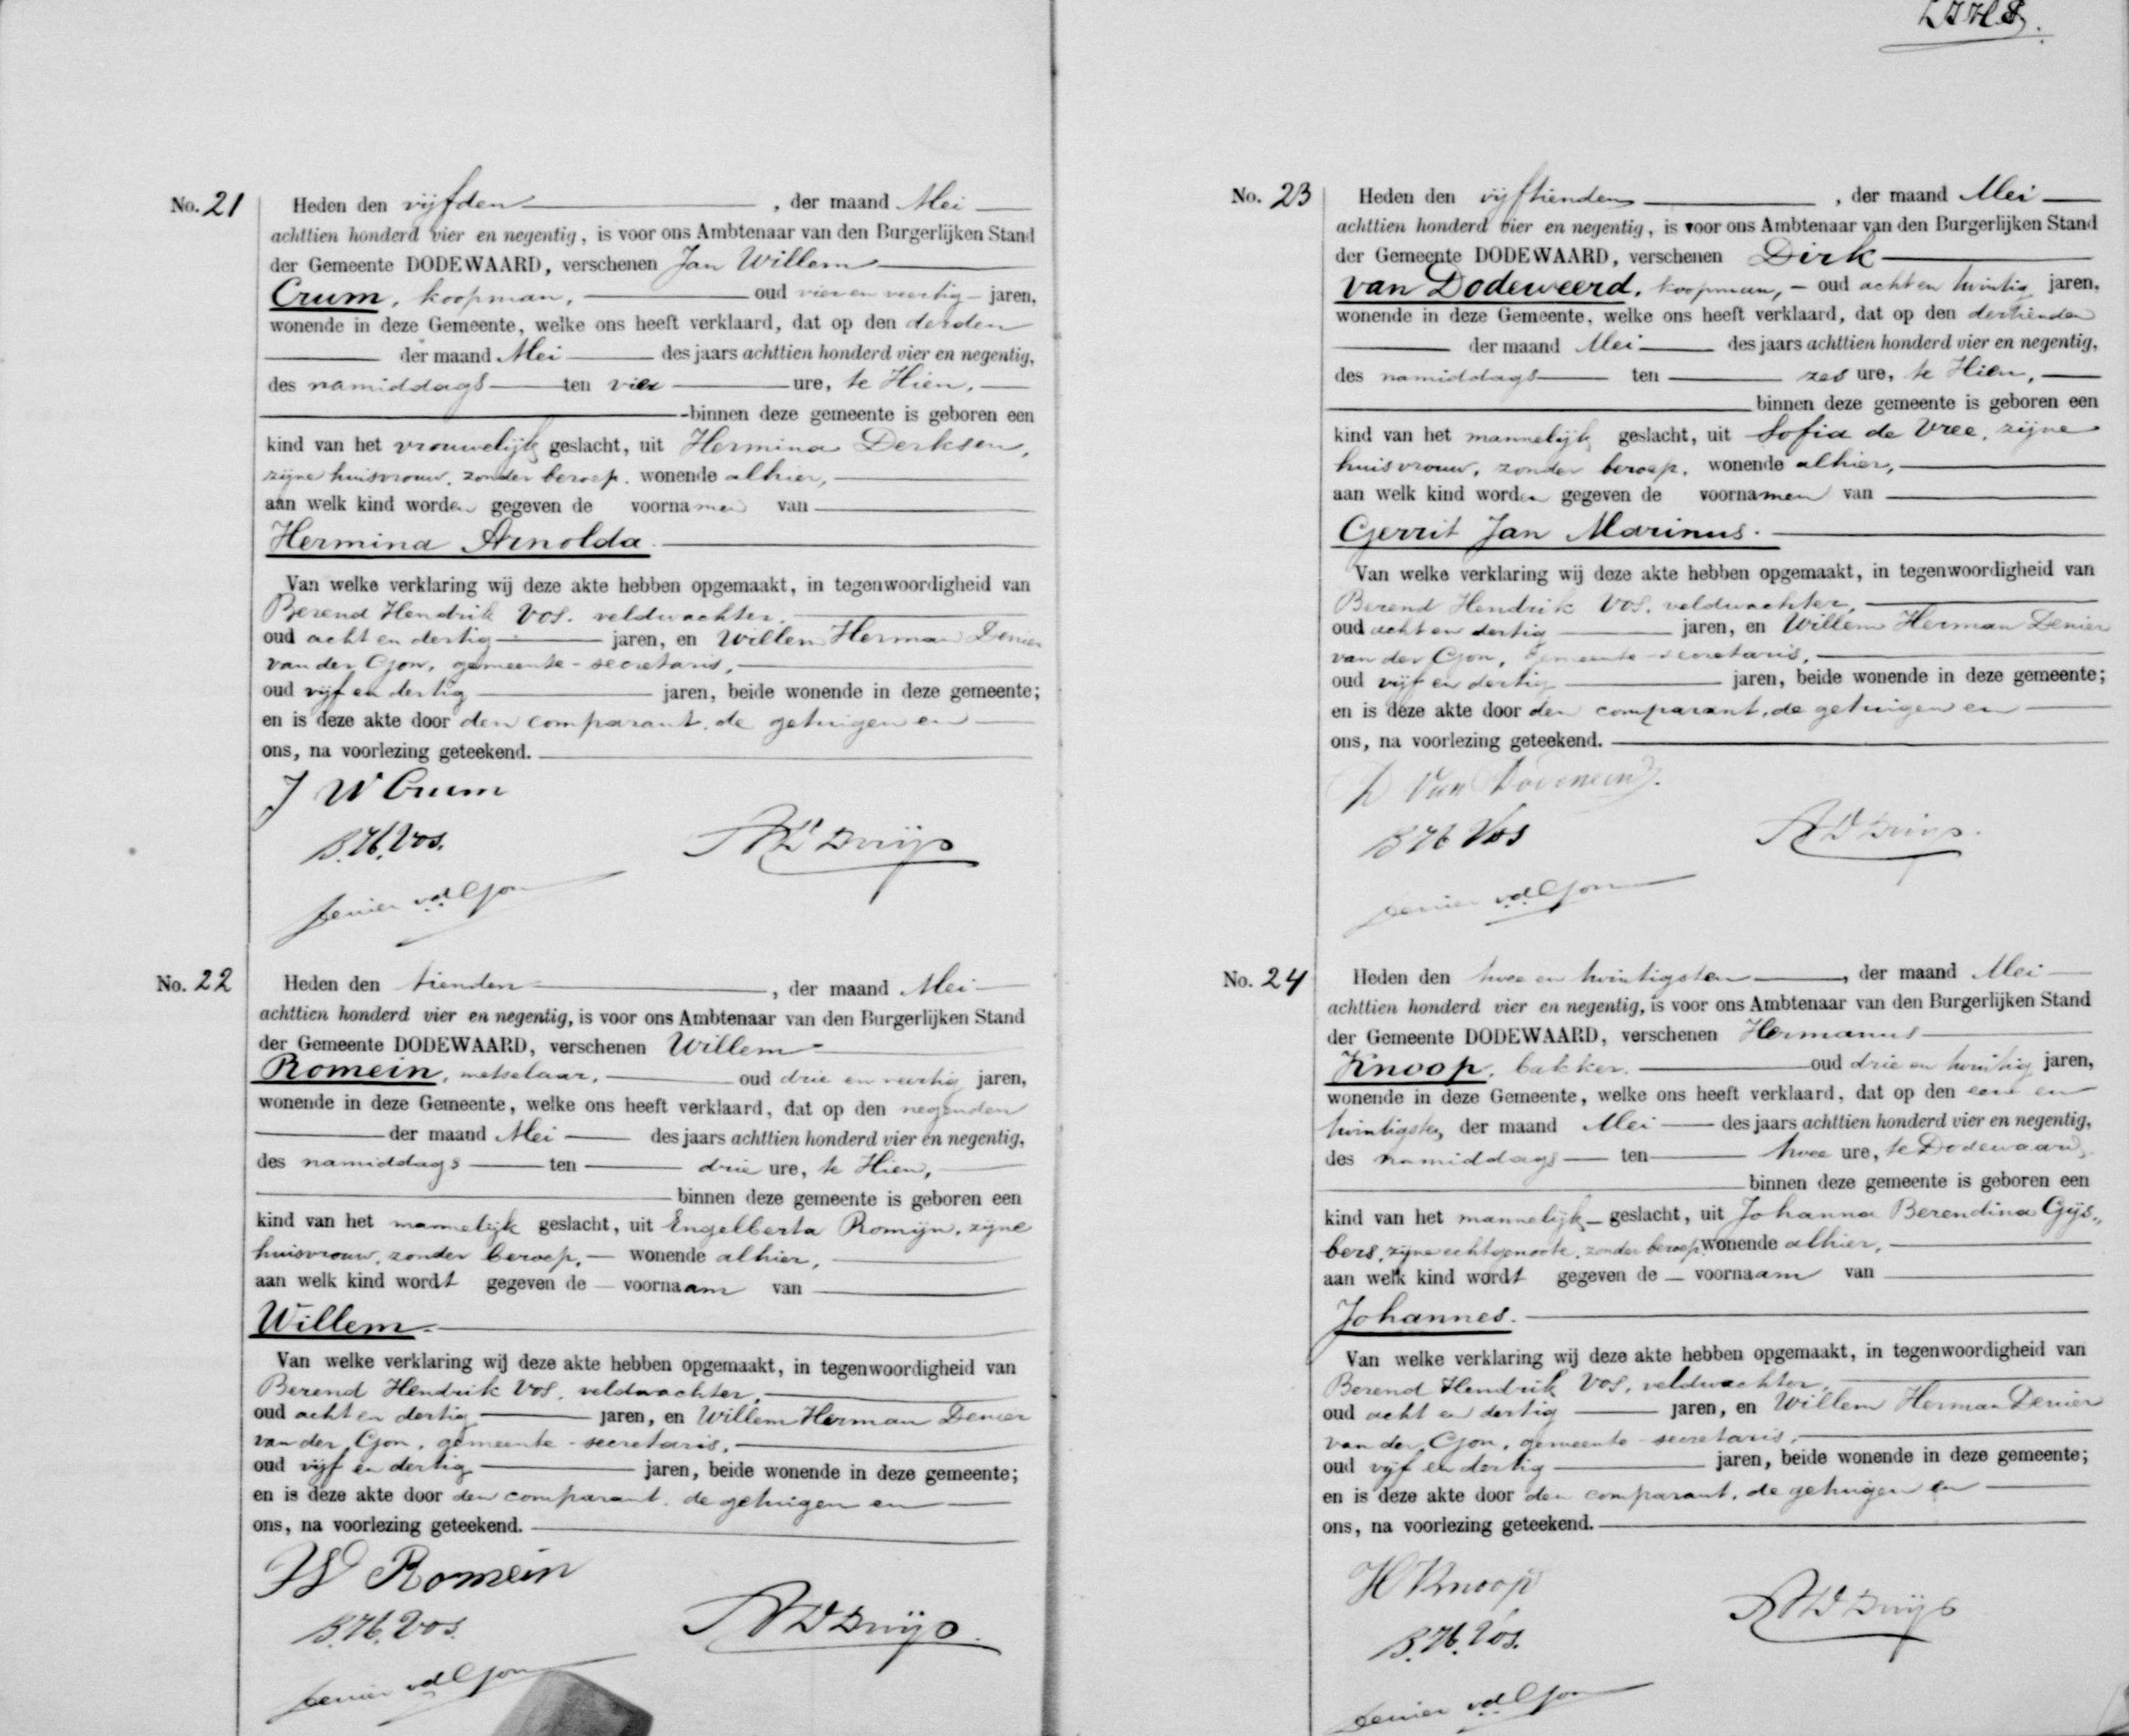 No. 21 Heden den vijfden, der maand Mei
achttien honderd vier en negentig, is voor ons Ambtenaar van den Burgerlijken Stand
der Gemeente DODEWAARD, verschenen Jan Willem
Crum, koopman, oud vier en veertig jaren,
wonende in deze Gemeente, welke ons heeft verklaard, dat op den derden
der maand Mei des jaars achttien honderd vier en negentig,
des namiddags ten vier ure, te Hien,
binnen deze gemeente is geboren een
kind van het vrouwelijk geslacht, uit Hermina Derksen,
zijne huisvrouw, zonder beroep, wonende alhier,
aan welk kind worden gegeven de voornamen van
Hermina Arnolda.
Van welke verklaring wij deze akte hebben opgemaakt, in tegenwoordigheid van
Berend Hendrik Vos, veldwachter,
oud acht en dertig jaren, en Willem Herman Denier
van der Gon, gemeente-secretaris,
oud vijf en dertig jaren, beide wonende in deze gemeente;
en is deze akte door den comparant, de getuigen en
ons, na voorlezing geteekend.
J W Crum
B.H. Vos.
Denier vd Gon
No. 22 Heden den tienden, der maand Mei
achttien honderd vier en negentig, is voor ons Ambtenaar van den Burgerlijken Stand
der Gemeente DODEWAARD, verschenen Willem
Romein, metselaar, oud drie en veertig jaren,
wonende in deze Gemeente, welke ons heeft verklaard, dat op den negenden
der maand Mei des jaars achttien honderd vier en negentig,
des namiddags ten drie ure, te Hien,
binnen deze gemeente is geboren een
kind van het mannelijk geslacht, uit Engelberta Romijn, zijne
huisvrouw, zonder beroep, wonende alhier,
aan welk kind wordt gegeven de voornaam van
Willem.
Van welke verklaring wij deze akte hebben opgemaakt, in tegenwoordigheid van
Berend Hendrik Vos, veldwachter,
oud acht en dertig jaren, en Willem Herman Denier
van der Gon, gemeente-secretaris,
oud vijf en dertig jaren, beide wonende in deze gemeente;
en is deze akte door den comparant, de getuigen en
ons, na voorlezing geteekend.
W Romein
B.H. Vos.
Denier vd Gon
No. 23 Heden den vijftienden, der maand Mei
achttien honderd vier en negentig, is voor ons Ambtenaar van den Burgerlijken Stand
der Gemeente DODEWAARD, verschenen Dirk
van Dodeweerd, koopman, oud acht en twintig jaren,
wonende in deze Gemeente, welke ons heeft verklaard, dat op den dertienden
der maand Mei des jaars achttien honderd vier en negentig,
des namiddags ten zes ure, te Hien,
binnen deze gemeente is geboren een
kind van het mannelijk geslacht, uit Sofia de Vree, zijne
huisvrouw, zonder beroep, wonende alhier,
aan welk kind worden gegeven de voornamen van
Gerrit Jan Marinus.
Van welke verklaring wij deze akte hebben opgemaakt, in tegenwoordigheid van
Berend Hendrik Vos, veldwachter,
oud acht en dertig jaren, en Willem Herman Denier
van der Gon, gemeente-secretaris,
oud vijf en dertig jaren, beide wonende in deze gemeente;
en is deze akte door den comparant, de getuigen en
ons, na voorlezing geteekend.
D van Dodeweerd.
B H Vos
Denier vd Gon
No. 24 Heden den twee en twintigsten, der maand Mei
achttien honderd vier en negentig, is voor ons Ambtenaar van den Burgerlijken Stand
der Gemeente DODEWAARD, verschenen Hermanus
Knoop, bakker, oud drie en twintig jaren,
wonende in deze Gemeente, welke ons heeft verklaard, dat op den een en
twintigsten der maand Mei des jaars achttien honderd vier en negentig,
des namiddags ten twee ure, te Dodewaard,
binnen deze gemeente is geboren een
kind van het mannelijk geslacht, uit Johanna Berendina Gijs„
bers, zijne echtgenoote, zonder beroep, wonende alhier,
aan welk kind wordt gegeven de voornaam van
Johannes.
Van welke verklaring wij deze akte hebben opgemaakt, in tegenwoordigheid van
Berend Hendrik Vos, veldwachter,
oud acht en dertig jaren, en Willem Herman Denier
van der Gon, gemeente-secretaris,
oud vijf en dertig jaren, beide wonende in deze gemeente;
en is deze akte door den comparant, de getuigen en
ons, na voorlezing geteekend.
H Knoop
B.H. Vos.
Denier vd Gon